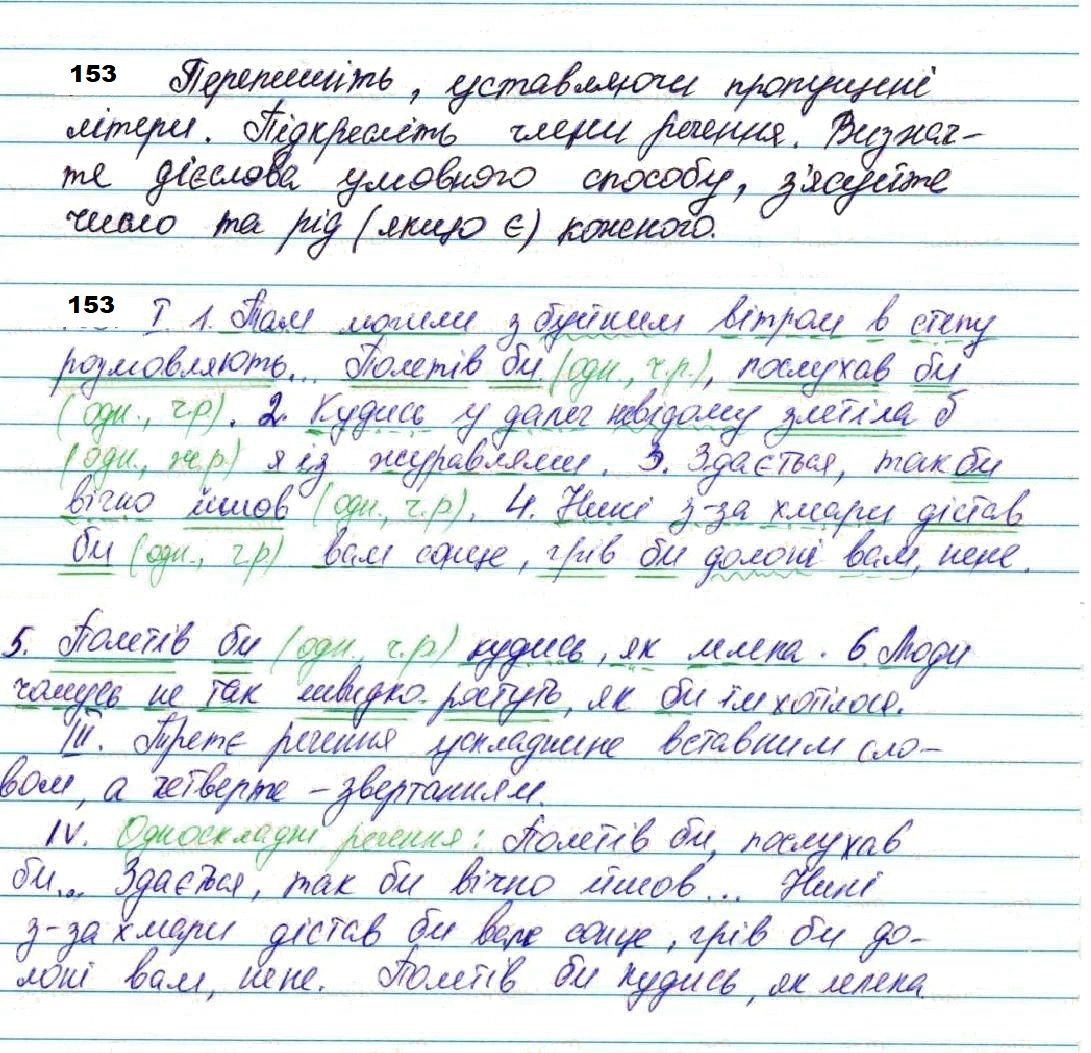 153 Перепишіть, уставляючи пропущені
літери. Підкресліть члени речення. Визнач-
те дієслова умовного способу, з'ясуйте
число та рід (якщо є) кожного.
153 І. 1. Там могили з буйним вітром в степу
розмовляють... Полетів би (одн., ч.р.), послухав би
(одн., ч.р). 2. Кудись у далеч невідому злетіла б
(одн., ж.р) я із журавлями. 3. Здається, так би
вічно йшов (одн., ч.р). 4. Нині з-за хмари дістав
би (одн., ч.р) вам сонце, грів би долоні вам, нене.
5. Полетів би (одн., ч.р) кудись, як лелека. 6. Люди
чомусь не так швидко ростуть, як би їм хотілося.
ІІІ. Третє речення ускладнене вставним сло-
вом, а четверте – звертанням.
IV. Односкладні речення: Полетів би, послухав
би... Здається, так би вічно йшов... Нині
з-за хмари дістав би вам сонце, грів би до-
лоні вам, нене. Полетів би кудись, як лелека